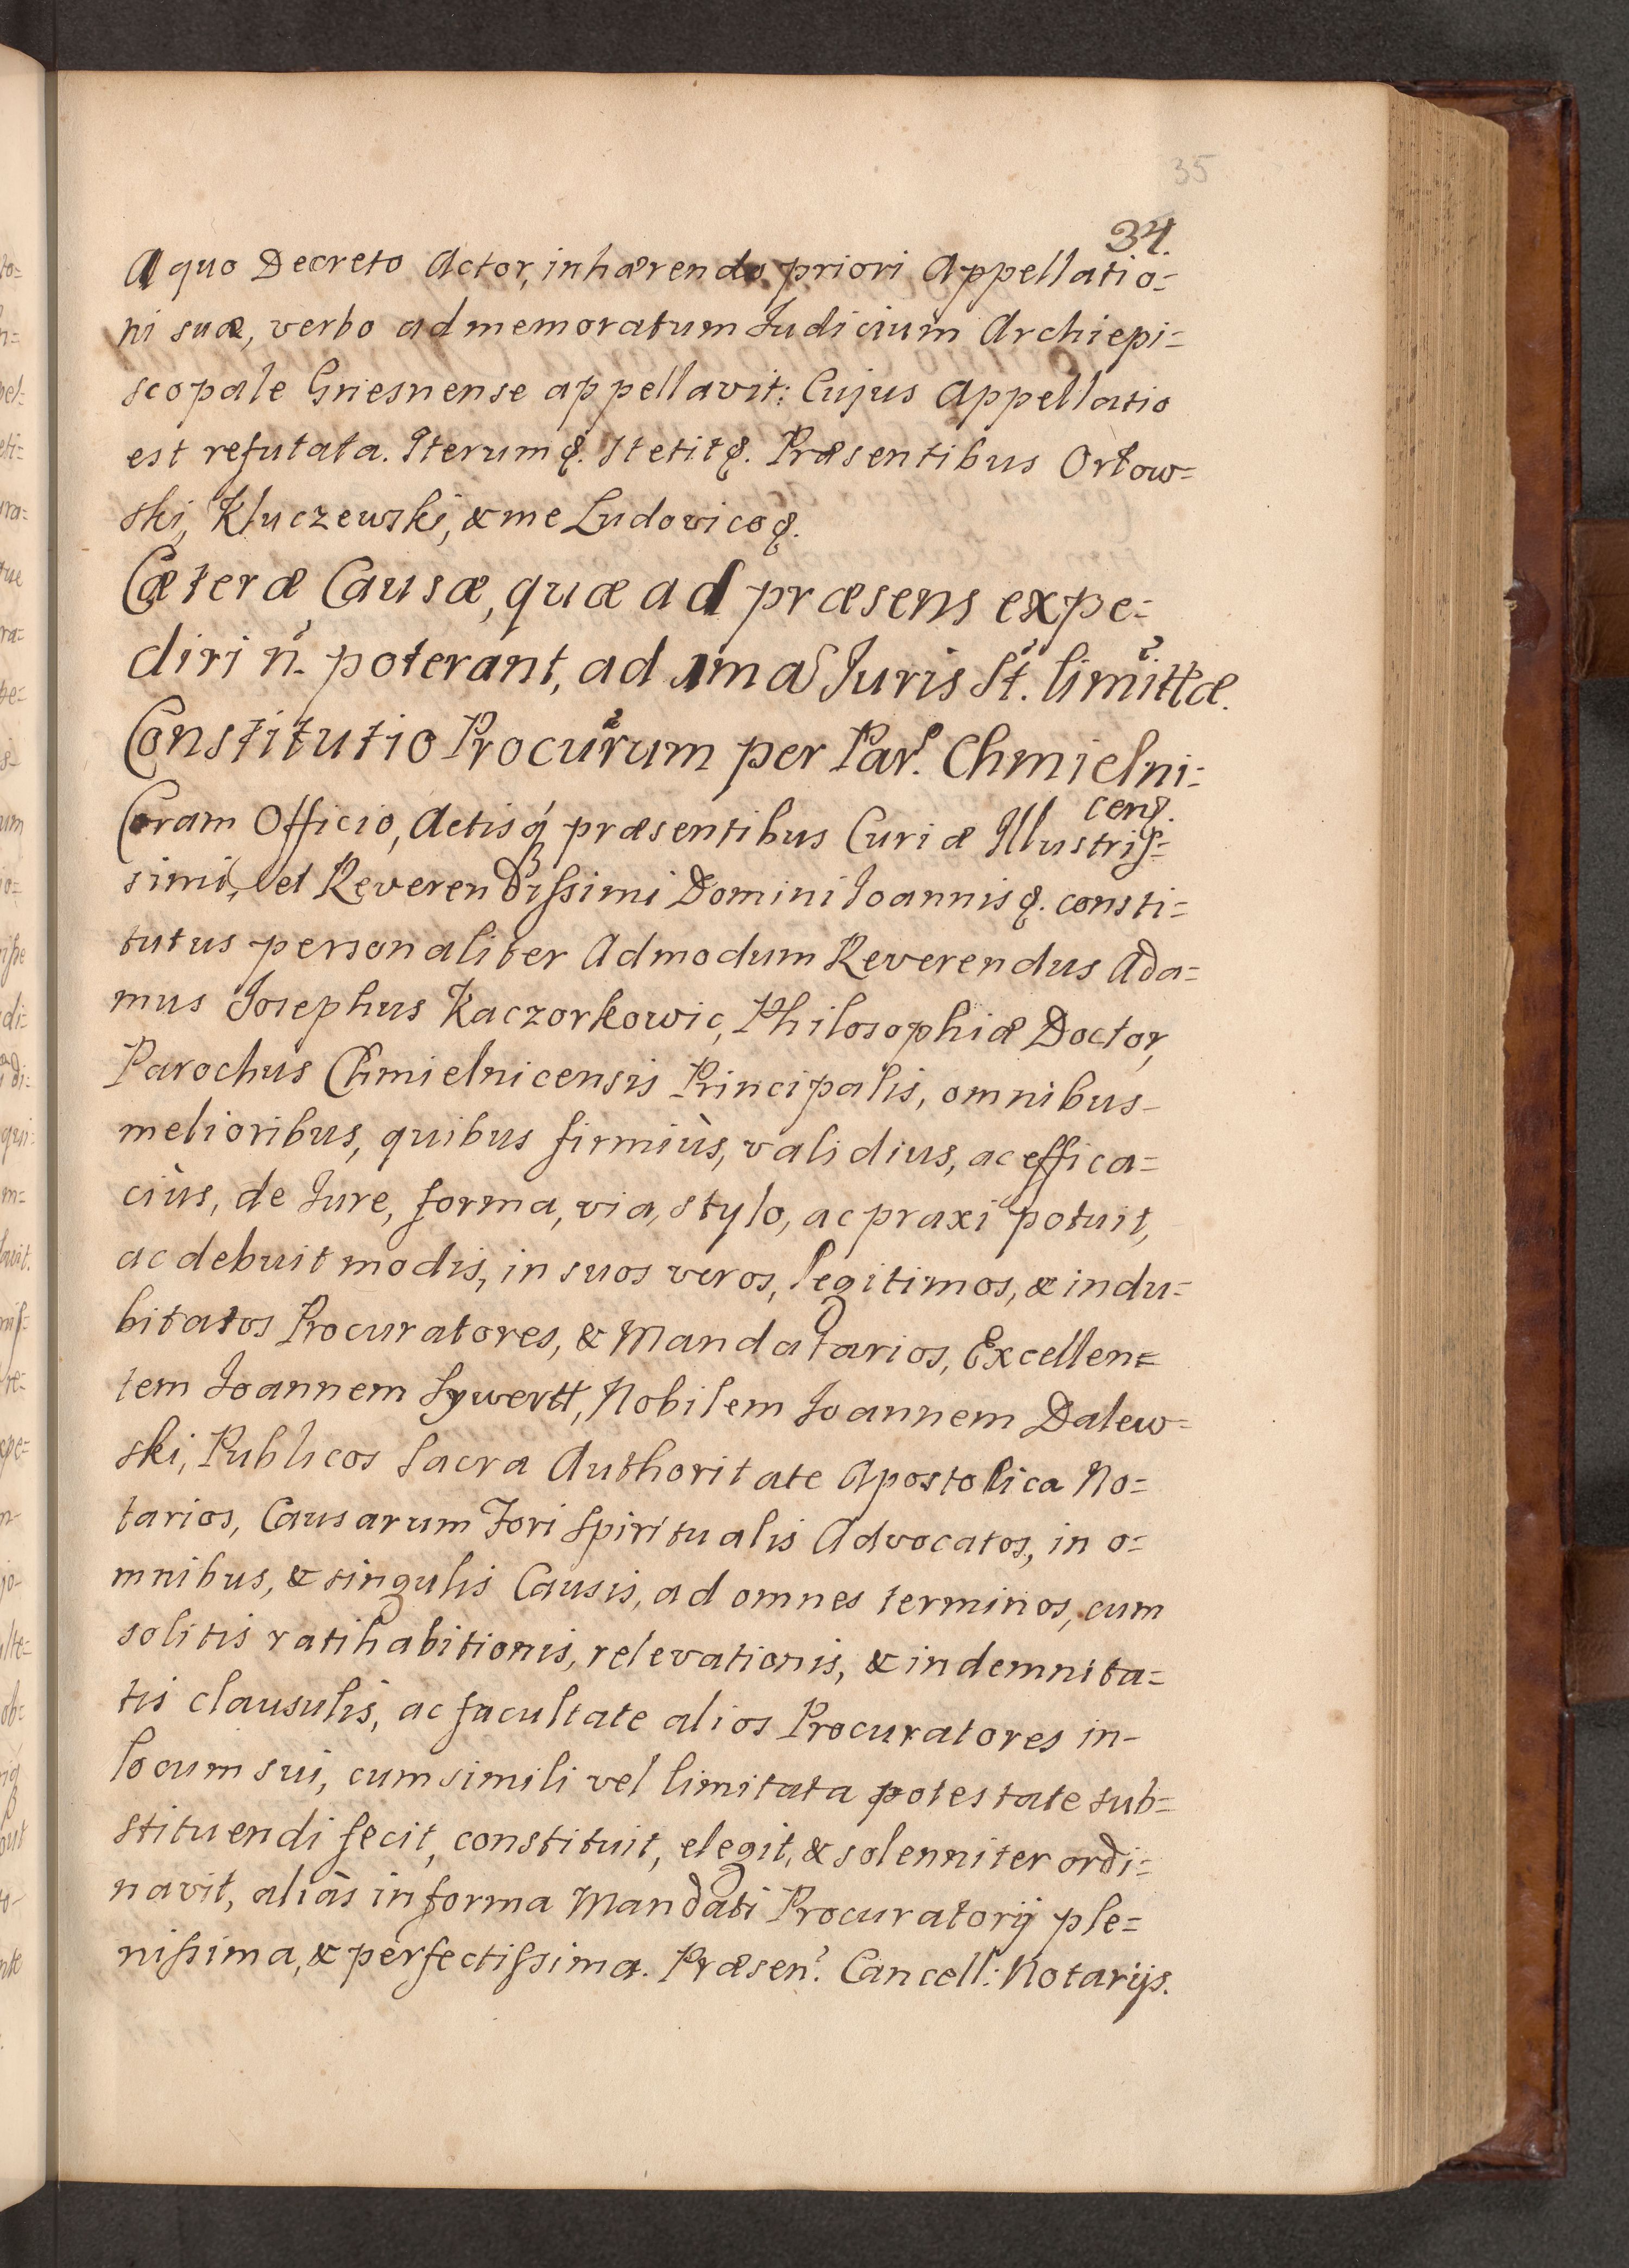 35
34.
A quo Decreto Actor, inhærendo priori Appellatio=
ni suæ, verbo ad memoratum Iudicium Archiepi=
scopale Gnesnense appellavit: Cujus Appellatio
est refutata. Iterumq. stetitq. Præsentibus Orłow=
ski, Kluczewski, & me Ludovicoq.
Cæteræ Causæ, quæ ad præsens expe=
diri n. poterant, ad 1ma Iuris St. limittæ.
Constitutio Procurum per Par. Chmielni=
cenq.
Coram Officio, Actisq præsentibus Curiæ Illustris=
simi, et Reverendissimi Domini Ioannisq. consti=
tutus personaliter Admodum Reverendus Ada=
mus Iosephus Kaczorkowic, Philosophiæ Doctor,
Parochus Chmielnicensis Principalis, omnibus
melioribus, quibus firmiùs, validius, ac effica=
ciùs, de Iure, forma, via, stylo, ac praxi potuit,
ac debuit modis, in suos veros, legitimos, & indu=
bitatos Procuratores, & Mandatarios, Excellen=
tem Ioannem Sywertt, Nobilem Ioannem Dalew=
ski, Publicos Sacra Authoritate Apostolica No=
tarios, Causarum Fori Spiritualis Advocatos, in o=
mnibus, & singulis Causis, ad omnes terminos, cum
solitis ratihabitionis, relevationis, & indemnita=
tis clausulis, ac facultate alios Procuratores in-
locum sui, cum simili vel limitata potestate sub=
stituendi fecit, constituit, elegit, & solenniter ordi=
navit, aliàs in forma Mandati Procuratorij ple=
nissima, & perfectissima. Præsen. Cancell: Notarijs.